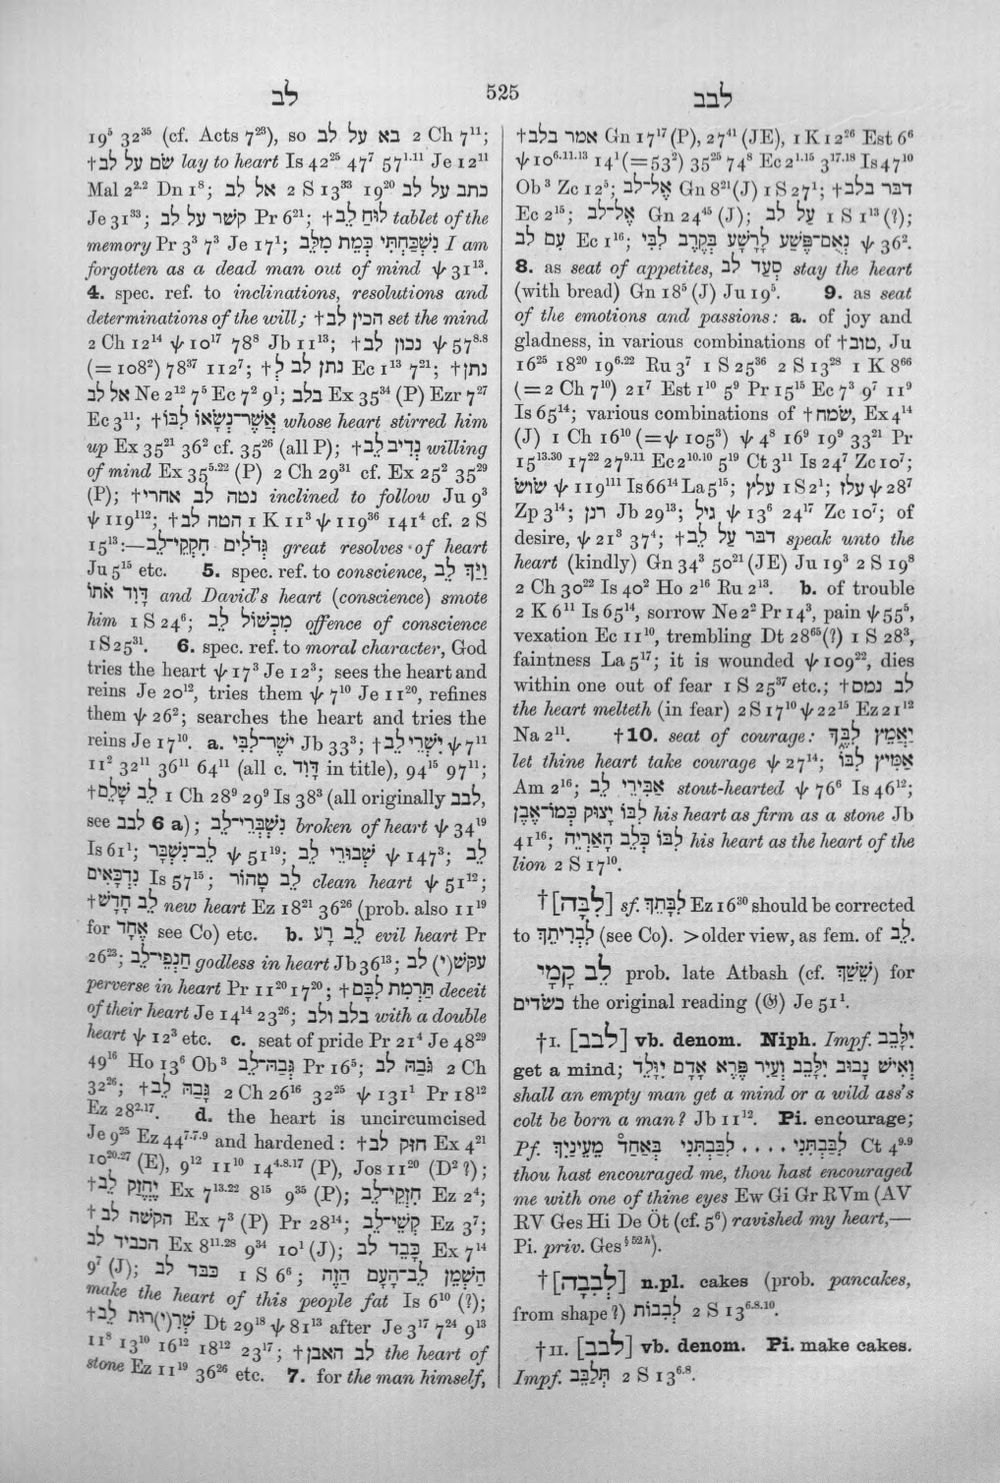 לב
525
לבב
19⁵ 32³⁵ (cf. Acts 7²³), so בא על לב 2 Ch 7¹¹;
†שׂם על לב lay to heart Is 42²⁵ 47⁷ 57¹·¹¹ Je 12¹¹
Mal 2²·² Dn 1⁸; אל לב 2 S 13³³ 19²⁰ כתב על לב
Je 31³³; קשׁר על לב Pr 6²¹; †לוּחַ לֵב tablet of the
memory Pr 3³ 7³ Je 17¹; נִשְׁכַּחְתִּי כְּמֵת מִלֵּב I am
forgotten as a dead man out of mind ψ 31¹³.
4. spec. ref. to inclinations, resolutions and
determinations of the will; †הכין לב set the mind
2 Ch 12¹⁴ ψ 10¹⁷ 78⁸ Jb 11¹³; †נכון לב ψ 57⁸·⁸
(= 108²) 78³⁷ 112⁷; †נתן לב לְ Ec 1¹³ 7²¹; †נתן
אל לב Ne 2¹² 7⁵ Ec 7² 9¹; בלב Ex 35³⁴ (P) Ezr 7²⁷
Ec 3¹¹; †אֲשֶׁר־נְשָׂאוֹ לִבּוֹ whose heart stirred him
up Ex 35²¹ 36² cf. 35²⁶ (all P); †נְדִיב־לֵב willing
of mind Ex 35⁵·²² (P) 2 Ch 29³¹ cf. Ex 25² 35²⁹
(P); †נטה לב אחרי inclined to follow Ju 9³
ψ 119¹¹²; †הטה לב 1 K 11³ ψ 119³⁶ 141⁴ cf. 2 S
15¹³:—גְּדֹלִים חִקְקֵי־לֵב great resolves of heart
Ju 5¹⁵ etc. 5. spec. ref. to conscience, וַיַּךְ לֵב
דָּוִד אֹתוֹ and David's heart (conscience) smote
him 1 S 24⁶; מִכְשׁוֹל לֵב offence of conscience
1 S 25³¹. 6. spec. ref. to moral character, God
tries the heart ψ 17³ Je 12³; sees the heart and
reins Je 20¹², tries them ψ 7¹⁰ Je 11²⁰, refines
them ψ 26²; searches the heart and tries the
reins Je 17¹⁰. a. יֹשֶׁר־לִבִּי Jb 33³; †יִשְׁרֵי לֵב ψ 7¹¹
11² 32¹¹ 36¹¹ 64¹¹ (all c. דָּוִד in title), 94¹⁵ 97¹¹;
†לֵב שָׁלֵם 1 Ch 28⁹ 29⁹ Is 38³ (all originally לבב,
see לבב 6 a); נִשְׁבְּרֵי־לֵב broken of heart ψ 34¹⁹
Is 61¹; לֵב־נִשְׁבָּר ψ 51¹⁹; שְׁבוּרֵי לֵב ψ 147³; לֵב
נִדְכָּאִים Is 57¹⁵; לֵב טָהוֹר clean heart ψ 51¹²;
†לֵב חָדָשׁ new heart Ez 18²¹ 36²⁶ (prob. also 11¹⁹
for אֶחָד see Co) etc. b. לֵב רָע evil heart Pr
26²³; חַנְפֵי־לֵב godless in heart Jb 36¹³; עקשׁ(י) לב
perverse in heart Pr 11²⁰ 17²⁰; †תַּרְמִת לִבָּם deceit
of their heart Je 14¹⁴ 23²⁶; בלב ולב with a double
heart ψ 12³ etc. c. seat of pride Pr 21⁴ Je 48²⁹
49¹⁶ Ho 13⁶ Ob³ גְּבַהּ־לֵב Pr 16⁵; גֹּבַהּ לב 2 Ch
32²⁶; †גָּבַהּ לֵב 2 Ch 26¹⁶ 32²⁵ ψ 131¹ Pr 18¹²
Ez 28²·¹⁷. d. the heart is uncircumcised
Je 9²⁵ Ez 44⁷·⁷·⁹ and hardened: †חזק לב Ex 4²¹
10²⁰·²⁷ (E), 9¹² 11¹⁰ 14⁴·⁸·¹⁷ (P), Jos 11²⁰ (D² ?);
†יֶחֱזַק לֵב Ex 7¹³·²² 8¹⁵ 9³⁵ (P); חִזְקֵי־לֵב Ez 2⁴;
†הקשׁה לב Ex 7³ (P) Pr 28¹⁴; קְשֵׁי־לֵב Ez 3⁷;
הכביד לב Ex 8¹¹·²⁸ 9³⁴ 10¹ (J); כָּבֵד לב Ex 7¹⁴
9⁷ (J); כבד לב 1 S 6⁶; הַשְׁמֵן לֵב־הָעָם הַזֶּה
make the heart of this people fat Is 6¹⁰ (?);
†שְׁרִ(י)רוּת לֵב Dt 29¹⁸ ψ 81¹³ after Je 3¹⁷ 7²⁴ 9¹³
11⁸ 13¹⁰ 16¹² 18¹² 23¹⁷; †לב האבן the heart of
stone Ez 11¹⁹ 36²⁶ etc. 7. for the man himself,
†אמר בלב Gn 17¹⁷ (P), 27⁴¹ (JE), 1 K 12²⁶ Est 6⁶
ψ 10⁶·¹¹·¹³ 14¹ (= 53²) 35²⁵ 74⁸ Ec 2¹·¹⁵ 3¹⁷·¹⁸ Is 47¹⁰
Ob³ Zc 12⁵; אֶל־לֵב Gn 8²¹ (J) 1 S 27¹; †דבר בלב
Ec 2¹⁵; אֶל־לֵב Gn 24⁴⁵ (J); על לב 1 S 1¹³ (?);
עִם לֵב Ec 1¹⁶; נְאֻם־פֶּשַׁע לָרָשָׁע בְּקֶרֶב לִבִּי ψ 36².
8. as seat of appetites, סְעָד לב stay the heart
(with bread) Gn 18⁵ (J) Ju 19⁵. 9. as seat
of the emotions and passions: a. of joy and
gladness, in various combinations of †טוב, Ju
16²⁵ 18²⁰ 19⁶·²² Ru 3⁷ 1 S 25³⁶ 2 S 13²⁸ 1 K 8⁶⁶
(= 2 Ch 7¹⁰) 21⁷ Est 1¹⁰ 5⁹ Pr 15¹⁵ Ec 7³ 9⁷ 11⁹
Is 65¹⁴; various combinations of †שׂמח, Ex 4¹⁴
(J) 1 Ch 16¹⁰ (= ψ 105³) ψ 4⁸ 16⁹ 19⁹ 33²¹ Pr
15¹³·³⁰ 17²² 27⁹·¹¹ Ec 2¹⁰·¹⁰ 5¹⁹ Ct 3¹¹ Is 24⁷ Zc 10⁷;
שׂושׂ ψ 119¹¹¹ Is 66¹⁴ La 5¹⁵; עלץ 1 S 2¹; עלז ψ 28⁷
Zp 3¹⁴; רנן Jb 29¹³; גיל ψ 13⁶ 24¹⁷ Zc 10⁷; of
desire, ψ 21³ 37⁴; †דבר על לֵב speak unto the
heart (kindly) Gn 34³ 50²¹ (JE) Ju 19³ 2 S 19⁸
2 Ch 30²² Is 40² Ho 2¹⁶ Ru 2¹³. b. of trouble
2 K 6¹¹ Is 65¹⁴, sorrow Ne 2² Pr 14³, pain ψ 55⁵,
vexation Ec 11¹⁰, trembling Dt 28⁶⁵ (?) 1 S 28³,
faintness La 5¹⁷; it is wounded ψ 109²², dies
within one out of fear 1 S 25³⁷ etc.; †נמס לב
the heart melteth (in fear) 2 S 17¹⁰ ψ 22¹⁵ Ez 21¹²
Na 2¹¹. †10. seat of courage: יַאֲמֵץ לִבֶּךָ
let thine heart take courage ψ 27¹⁴; אַמִּיץ לִבּוֹ
Am 2¹⁶; אַבִּירֵי לֵב stout-hearted ψ 76⁶ Is 46¹²;
לִבּוֹ יָצוּק כְּמוֹ־אָבֶן his heart as firm as a stone Jb
41¹⁶; לִבּוֹ כְּלֵב הָאַרְיֵה his heart as the heart of the
lion 2 S 17¹⁰.
†[לִבָּה] sf. לִבָּתֵךְ Ez 16³⁰ should be corrected
to לִבְרִיתֵךְ (see Co). >older view, as fem. of לֵב.
לֵב קָמָי prob. late Atbash (cf. שֵׁשַׁךְ) for
כשׂדים the original reading (𝔊) Je 51¹.
†I. [לבב] vb. denom. Niph. Impf. יִלָּבֵב
get a mind; וְאִישׁ נָבוּב יִלָּבֵב וְעַיִר פֶּרֶא אָדָם יִוָּלֵד
shall an empty man get a mind or a wild ass's
colt be born a man? Jb 11¹². Pi. encourage;
Pf. לִבַּבְתִּנִי .... לִבַּבְתִּנִי בְּאַחַד מֵעֵינַיִךְ Ct 4⁹·⁹
thou hast encouraged me, thou hast encouraged
me with one of thine eyes Ew Gi Gr RVm (AV
RV Ges Hi De Öt (cf. 5⁶) ravished my heart,—
Pi. priv. Ges§ 52h).
†[לְבִבָה] n.pl. cakes (prob. pancakes,
from shape ?) לְבִבוֹת 2 S 13⁶·⁸·¹⁰.
†II. [לבב] vb. denom. Pi. make cakes.
Impf. תְּלַבֵּב 2 S 13⁶·⁸.